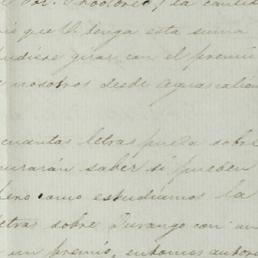 la cantid
que V. tenga esta suma
pudiese girar con el premio
nosotros desde Aguascalien
cuantas letras pueda sobre
curarán saber si pueden
pero como estudiamos la
letras sobre Durango con un
un premio, entonces